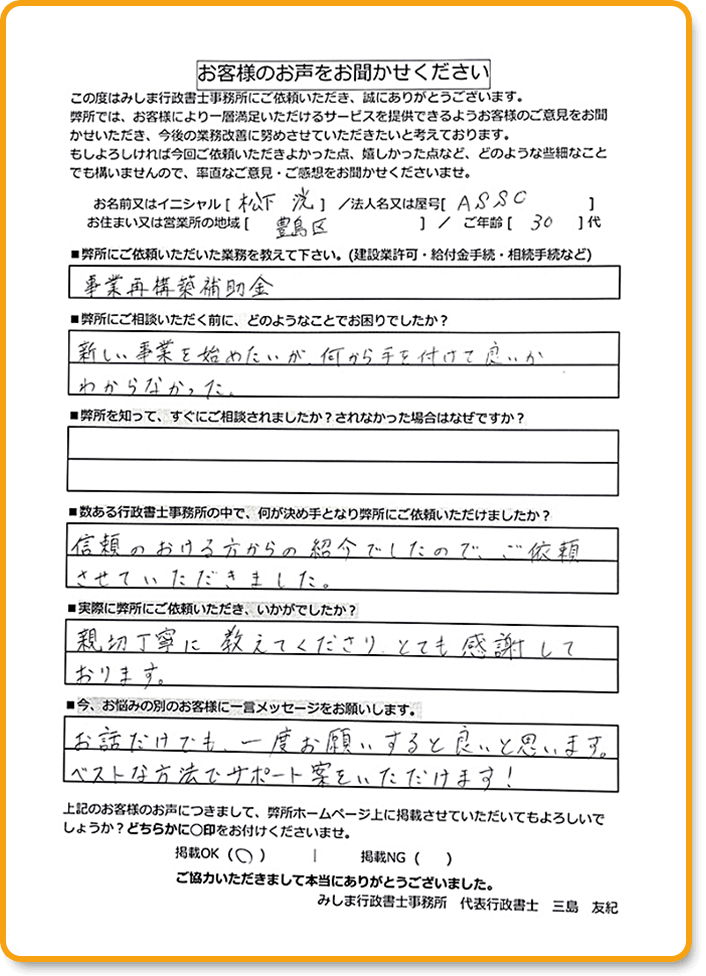 お客様のお声をお聞かせください
この度はみしま行政書士事務所にご依頼いただき、誠にありがとうございます。
弊所では、お客様により一層満足いただけるサービスを提供できるようお客様のご意見をお聞
かせいただき、今後の業務改善に努めさせていただきたいと考えております。
もしよろしければ今回ご依頼いただきよかった点、嬉しかった点など、どのような些細なこと
でも構いませんので、率直なご意見・ご感想をお聞かせくださいませ。
お名前又はイニシャル [ 松下 洸 ] ／法人名又は屋号[ ASSC ]
お住まい又は営業所の地域 [ 豊島区 ] ／ ご年齢 [ 30 ] 代
■弊所にご依頼いただいた業務を教えて下さい。(建設業許可・給付金手続・相続手続など)
事業再構築補助金
■弊所にご相談いただく前に、どのようなことでお困りでしたか？
新しい事業を始めたいが、何から手を付けて良いか
わからなかった。
■弊所を知って、すぐにご相談されましたか？されなかった場合はなぜですか？
■数ある行政書士事務所の中で、何が決め手となり弊所にご依頼いただけましたか？
信頼のおける方からの紹介でしたので、ご依頼
させていただきました。
■実際に弊所にご依頼いただき、いかがでしたか？
親切丁寧に教えてくださり、とても感謝して
おります。
■今、お悩みの別のお客様に一言メッセージをお願いします。
お話だけでも、一度お願いすると良いと思います。
ベストな方法でサポート案をいただけます！
上記のお客様のお声につきまして、弊所ホームページ上に掲載させていただいてもよろしいで
しょうか？どちらかに〇印をお付けくださいませ。
掲載OK （〇） ｜ 掲載NG （ ）
ご協力いただきまして本当にありがとうございました。
みしま行政書士事務所 代表行政書士 三島 友紀